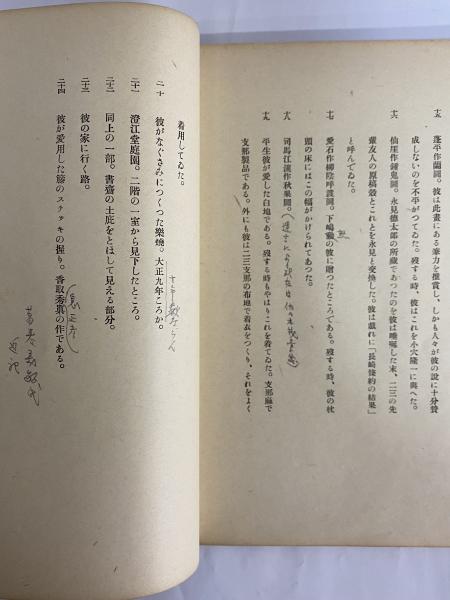 十五 蓬平作蘭圖。彼は此畫にある筆力を推賞し、しかも人々が彼の說に十分贊
成しないのを不平がつてゐた。歿する時、彼はこれを小穴隆一に與へた。
十六 仙厓作鍾鬼圖。永見德太郎の所藏であつたのを彼は懇囑した末、二三の先
輩友人の原稿幾とこれとを永見と交換した。彼は戲れに「長崎條約の結果」
と呼んでゐた。
十七 愛石作柳陰呼渡圖。下嶋勳の彼に贈つたところである。歿する時、彼の枕
頭の床にはこの幅がかけられてあつた。
十八 司馬江漢作秋果圖。
十九 平生彼が愛した白地である。歿する時もやはりこれを着てゐた。支那麻で
支那製品である。外にも彼は二三支那の布地で着衣をつくり、それをよく
着用してゐた。
二十 彼がなぐさみにつくつた樂燒。大正九年ころか。
二十一 澄江堂庭園。二階の一室から見下したところ。
二十二 同上の一部。書齋の土庇をとほして見える部分。
二十三 彼の家に行く路。
二十四 彼が愛用した籐のステッキの握り。香取秀眞の作である。